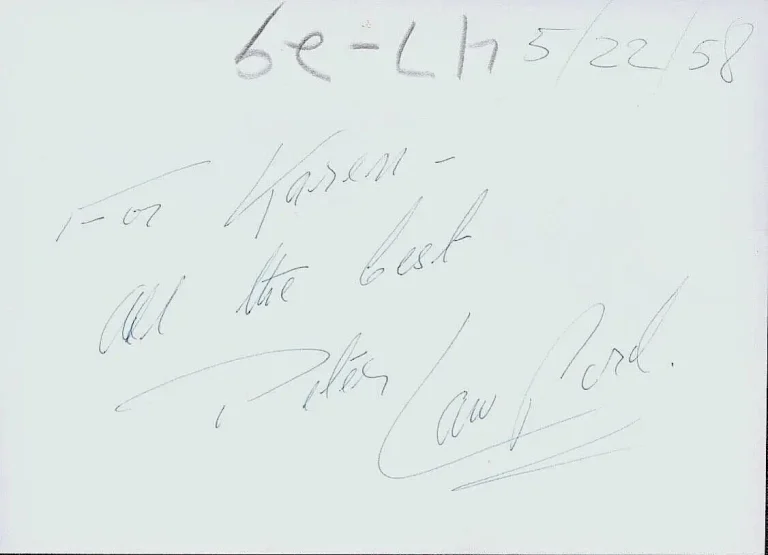 5/22/58
For Karen -
All the best
Peter Lawford.